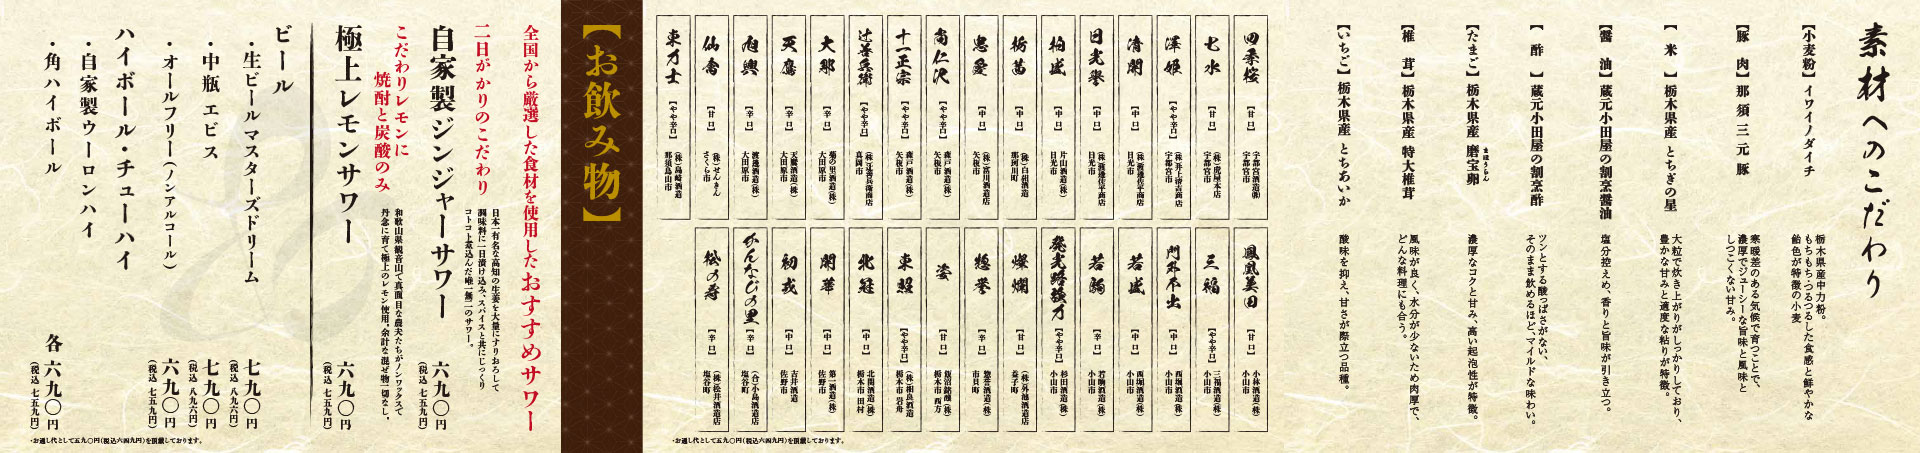 素材へのこだわり
【小麦粉】イワイノダイチ
栃木県産中力粉。
もちもち・つるつるした食感と鮮やかな
飴色が特徴の小麦
【豚 肉】那須三元豚
寒暖差のある気候で育つことで、
濃厚でジューシーな旨味と風味と
しつこくない甘み。
【米】栃木県産 とちぎの星
大粒で炊き上がりがしっかりしており、
豊かな甘みと適度な粘りが特徴。
【醤 油】蔵元小田屋の割烹醤油
塩分控え め、香りと旨味が引き立つ。
【酢】蔵元小田屋の割烹酢
ツンとする酸っぱさがない、
そのまま飲めるほど、マイルドな味わい。
【たまご】栃木県産 磨宝卵
まほうらん
濃厚なコクと甘み、高い起泡性が特徴。
【椎 茸】栃木県産 特大椎茸
風味が良く、水分が少ないため肉厚で、
どんな料理にも合う。
【いちご】栃木県産 とちあいか
酸味を抑え、甘さが際立つ品種。
四季桜【甘口】宇都宮酒造㈱ 宇都宮市
七水【甘口】(株)虎屋本店 宇都宮市
澤姫【やや辛口】(株)井上清吉商店 宇都宮市
清開【中口】(株)渡邊佐平商店 日光市
日光誉【中口】(株)渡邊佐平商店 日光市
柏盛【中口】片山酒造(株) 日光市
栃茜【中口】(株)白相酒造 那珂川町
忠愛【中口】(株)富川酒造店 矢板市
尚仁沢【やや辛口】森戸酒造(株) 矢板市
十一正宗【やや辛口】森戸酒造(株) 矢板市
辻善兵衛【やや辛口】(株)辻善兵衛商店 真岡市
大那【辛口】菊の里酒造(株) 大田原市
天鷹【辛口】天鷹酒造(株) 大田原市
旭興【辛口】渡邉酒造(株) 大田原市
仙禽【甘口】(株)せんきん さくら市
東力士【やや辛口】(株)島崎酒造 那須烏山市
鳳凰美田【甘口】小林酒造(株) 小山市
三福【やや辛口】三福酒造(株) 小山市
門外不出【中口】西堀酒造(株) 小山市
若盛【中口】西堀酒造(株) 小山市
若駒【辛口】若駒酒造(株) 小山市
発光路強力【やや辛口】杉田酒造(株) 小山市
燦爛【甘口】(株)外池酒造店 益子町
惣誉【辛口】惣誉酒造(株) 市貝町
姿【甘口】飯沼銘醸(株) 栃木市 西方
東照【やや辛口】(株)相良酒造 栃木市 岩舟
北冠【中口】北関酒造(株) 栃木市 田村
開華【中口】第一酒造(株) 佐野市
初戎【中口】吉井酒造 佐野市
かんなびの里【辛口】(合)小島酒造店 塩谷町
松の寿【辛口】(株)松井酒造店 塩谷町
・お通し代として五九〇円(税込六四九円)を頂戴しております。
【お飲み物】
全国から厳選した食材を使用したおすすめサワー
二日がかりのこだわり
自家製ジンジャーサワー
日本一有名な高知の生姜を大量にすりおろして
調味料に一日漬け込み、スパイスと共にじっくり
コトコト煮込んだ唯一無二のサワー。
六九〇円
(税込 七五九円)
こだわりレモンに
焼酎と炭酸のみ
極上レモンサワー
和歌山県観音山で真面目な農夫たちがノンワックスで
丹念に育て極上のレモン使用。余計な混ぜ物一切なし。
六九〇円
(税込 七五九円)
ビール
・生ビール マスターズドリーム
七九〇円
(税込 八六九円)
・中瓶 エビス
七九〇円
(税込 八六九円)
・オールフリー(ノンアルコール)
六九〇円
(税込 七五九円)
ハイボール・チューハイ
・自家製ウーロンハイ
・角ハイボール
各 六九〇円
(税込 七五九円)
・お通し代として五九〇円(税込六四九円)を頂戴しております。